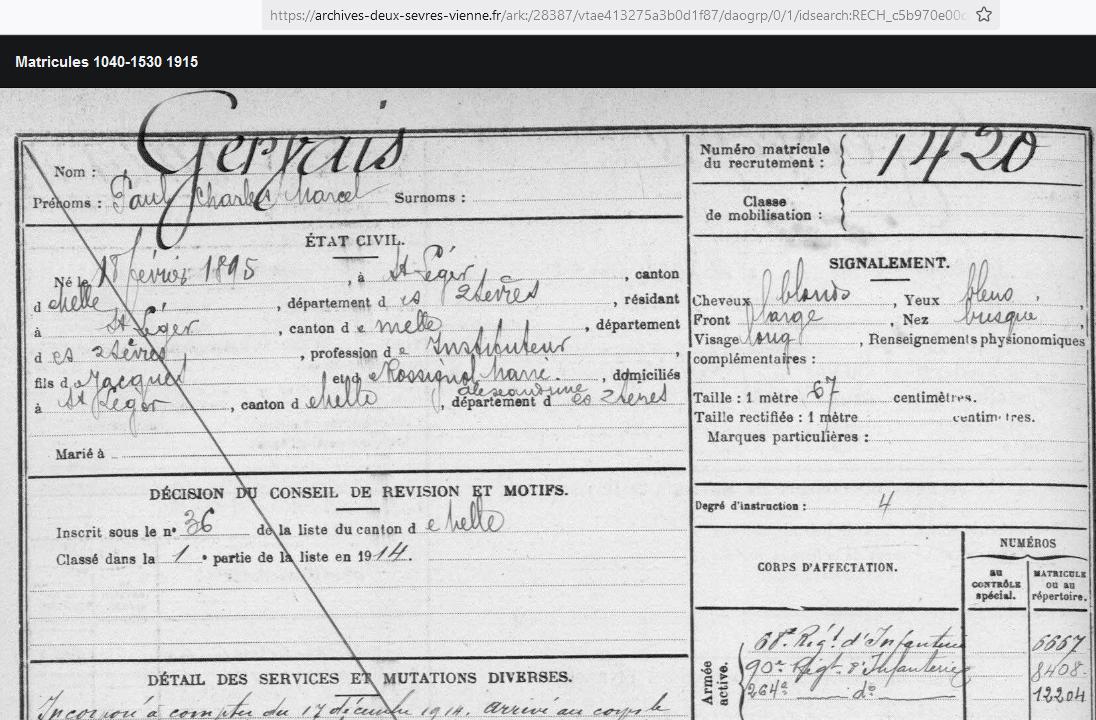 https://archives-deux-sevres-vienne.fr/ark:/28387/vtae413275a3b0d1f87/daogrp/0/1/idsearch:RECH_c5b970e00c
Matricules 1040-1530 1915
Nom : Gervais
Prénoms : Paul Charles Marcel Surnoms :
ÉTAT CIVIL.
Né le 18 février 1895, à St Léger, canton
d e Melle, département d es 2 Sèvres, résidant
à St Léger, canton d e Melle, département
d es 2 Sèvres, profession d Instituteur,
fils d e Jacques et d e Rossignol Marie alexandrine, domiciliés
à St Léger, canton d e Melle, département d es 2 Sèvres
Marié à
DÉCISION DU CONSEIL DE REVISION ET MOTIFS.
Inscrit sous le n° 36 de la liste du canton d e Melle
Classé dans la 1e partie de la liste en 1914.
DÉTAIL DES SERVICES ET MUTATIONS DIVERSES.
Incorporé à compter du 17 décembre 1914. arrivé au corps le
Numéro matricule du recrutement : 1420
Classe de mobilisation :
SIGNALEMENT.
Cheveux blonds, Yeux bleus,
Front large, Nez busqué,
Visage long, Renseignements physionomiques
complémentaires :
Taille : 1 mètre 67 centimètres.
Taille rectifiée : 1 mètre centimètres.
Marques particulières :
Degré d'instruction : 4
CORPS D'AFFECTATION.
NUMÉROS
au CONTRÔLE spécial.
MATRICULE ou au répertoire.
Armée active.
68e Régt d'Infanterie 6667
90e Régt d'Infanterie 8408
264e do 12204